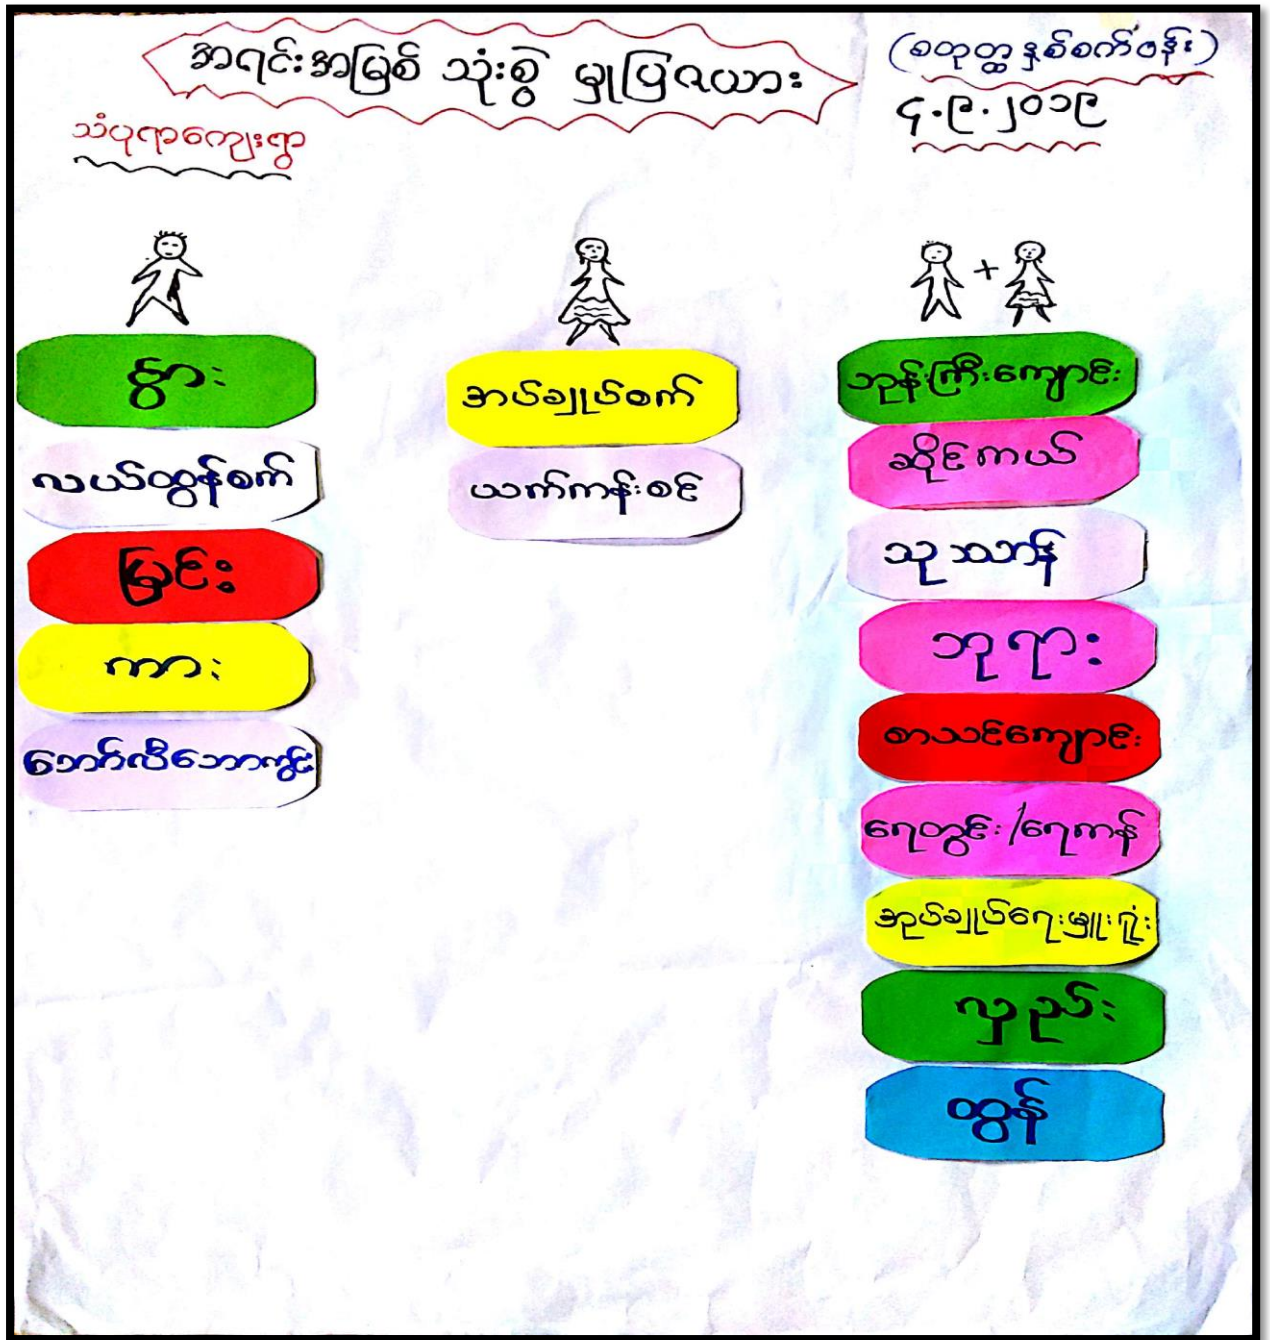 အရင်းအမြစ် သုံးစွဲ မှုပြဇယား
(စတုတ္ထ နှစ်စက်ဝန်း)
၄.၉.၂၀၁၉
သံပုရာကျေးရွာ
နွား
လယ်ထွန်စက်
မြင်း
ကား
ဘော်လီဘောကွင်း
အပ်ချုပ်စက်
ယက်ကန်းစင်
+
ဘုန်းကြီးကျောင်း
ဆိုင်ကယ်
သုဿာန်
ဘုရား
စာသင်ကျောင်း
ရေတွင်း/ရေကန်
အုပ်ချုပ်ရေးမှူးရုံး
လှည်း
ထွန်